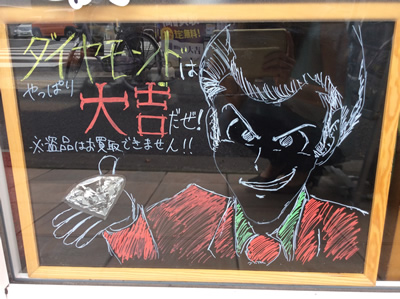 ダイヤモンドは
やっぱり
大吉だぜ!
※盗品はお買取できません!!